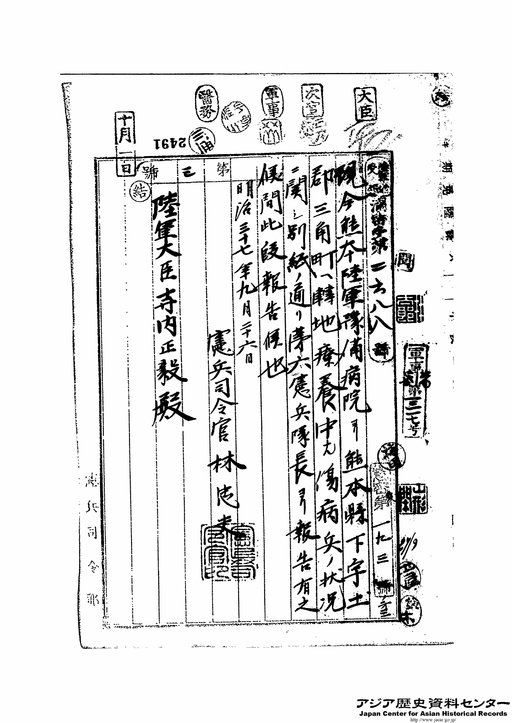 大臣
次官
軍事
醫務
十月一日
2491
第三號
結
滿密第二六八八號
軍事第三一七号
第一九三號
現今熊本陸軍豫備病院ヨリ熊本縣下宇土
郡三角町ヘ轉地療養中ナル傷病兵ノ状况
ニ関シ別紙ノ通リ第六憲兵隊長ヨリ報告有之
候間此段報告候也
明治三十七年九月二十六日
憲兵司令官林忠夫
陸軍大臣寺内正毅殿
憲兵司令部
アジア歴史資料センター
Japan Center for Asian Historical Records
http://www.jacar.go.jp/